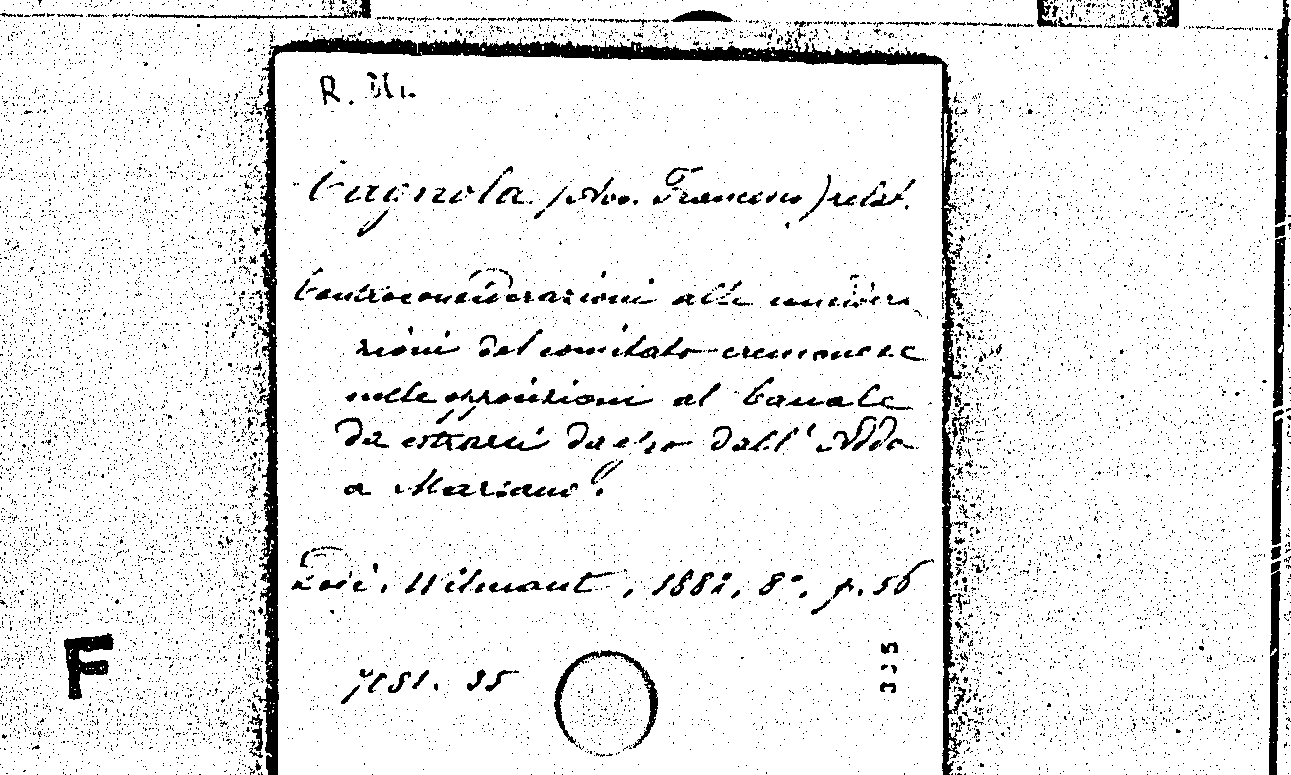 R. Mi.
Cagnola (Avv. Francesco) relat.
Controconsiderazioni alle considera
zioni del comitato cremonese
nelle opposizioni al Canale
da estrarsi dall'Adda
a Marzano.
Lodi, Wilmant, 1882, 8°, p. 56
335
F